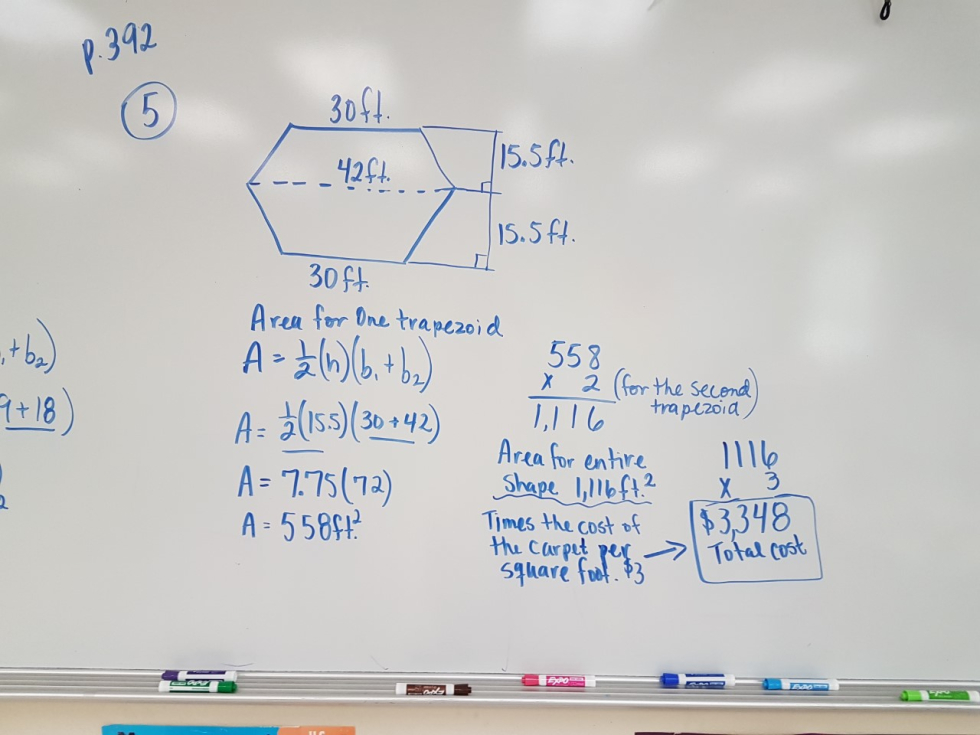 p.392
5
30ft.
15.5ft.
42ft.
15.5ft.
30ft.
Area for One trapezoid
A = ½(h)(b₁ + b₂)
A = ½(15.5)(30 + 42)
A = 7.75(72)
A = 558ft.²
+ b₂)
9 + 18)
2
558
x 2 (for the second trapezoid)
1,116
Area for entire
Shape 1,116ft.²
Times the cost of
the carpet per
square foot. $3
1116
x 3
$3,348
Total cost
EXPO
EXPO
EXPO